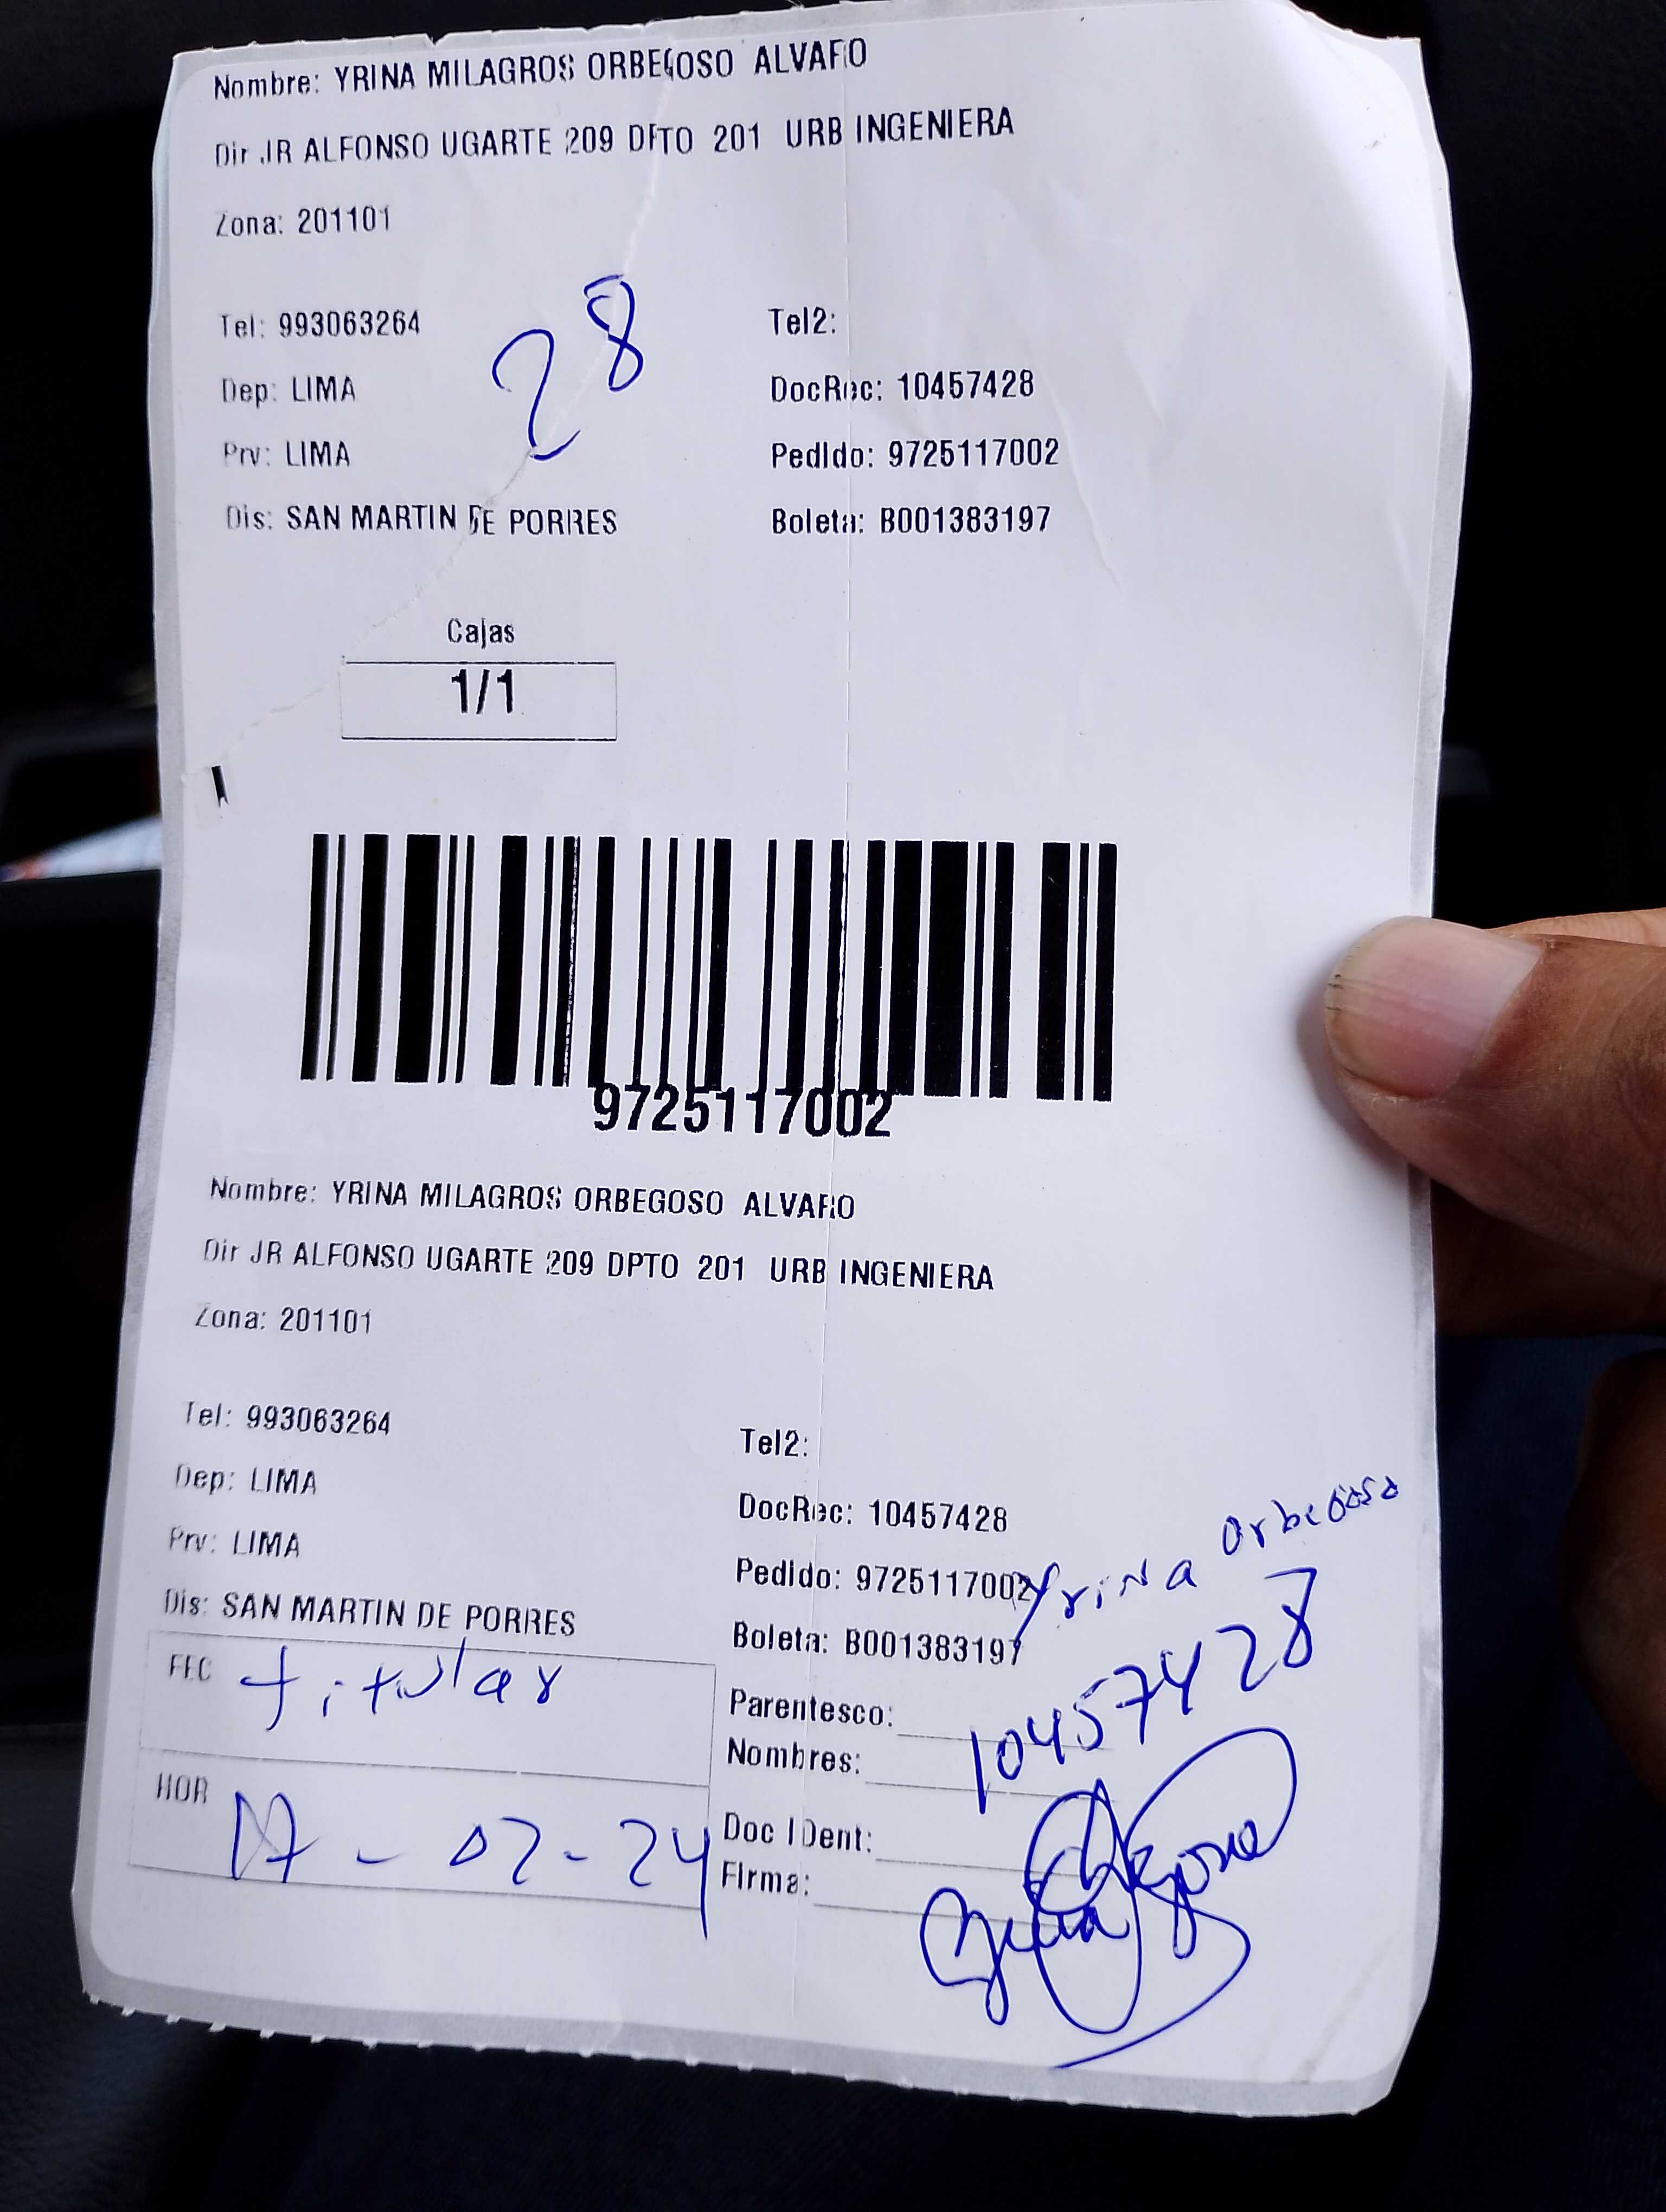 Nombre: YRINA MILAGROS ORBEGOSO ALVARO
Dir JR ALFONSO UGARTE 209 DPTO 201 URB INGENIERA
Zona: 201101
28
Tel: 993063264 Tel2:
Dep: LIMA DocRec: 10457428
Prv: LIMA PedIdo: 9725117002
Dis: SAN MARTIN DE PORRES Boleta: B001383197
Cajas
1/1
9725117002
Nombre: YRINA MILAGROS ORBEGOSO ALVARO
Dir JR ALFONSO UGARTE 209 DPTO 201 URB INGENIERA
Zona: 201101
Tel: 993063264 Tel2:
Dep: LIMA DocRec: 10457428
Prv: LIMA PedIdo: 9725117002 Yrina Orbegoso
Dis: SAN MARTIN DE PORRES Boleta: B001383197
FEC titular Parentesco: 10457428
Nombres:
HOR 17-02-24 Doc IDent:
FIrma: